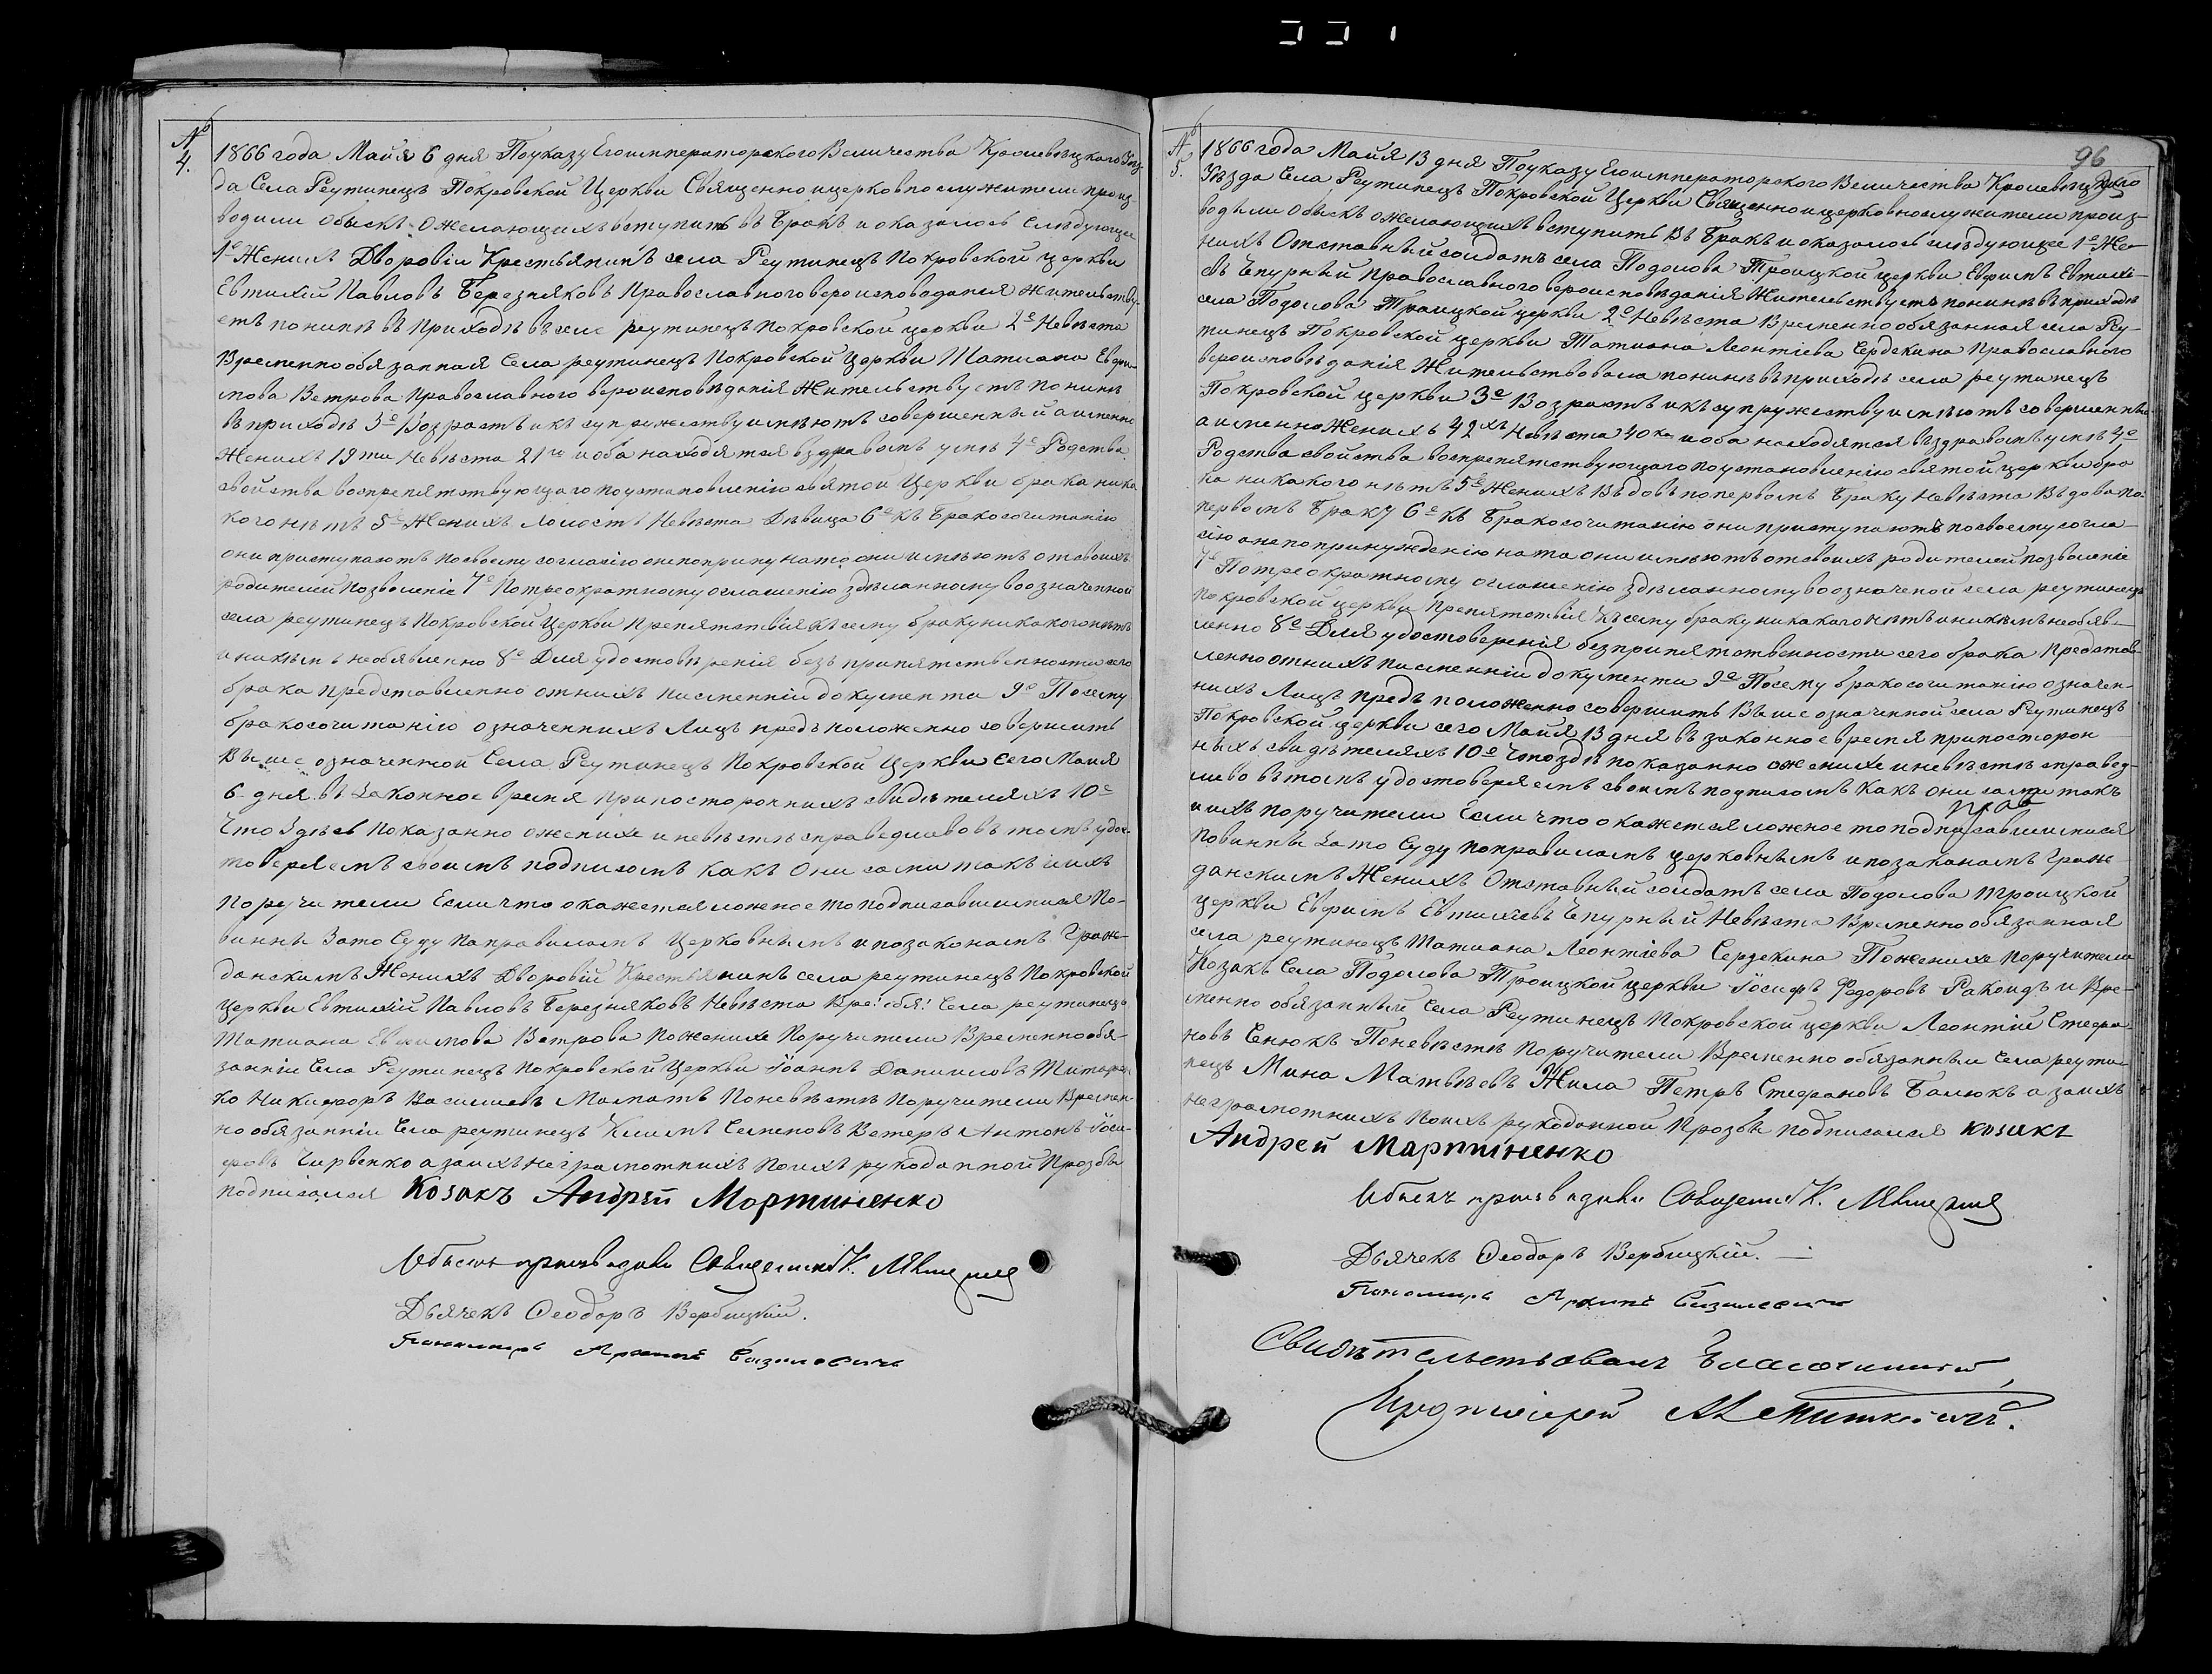 №
4.
1866 года Майя 6 дня Поуказу Егоимператорского Величества Кролевецкаго Уез-
да Села Реутинецъ Покровской Церкви Священноицерковнослужители произ-
водили обыскъ ожелающихъ вступить въ Бракъ и оказалось Следующее
1е Женихъ Дворовій Крестьянинъ села Реутинецъ Покровской церкви
Евтихій Павловъ Березняковъ Православного вероисповеданія Жительству-
етъ понинѣ въ Приходѣ въ селе реутинецъ Покровской церкви 2е Невѣста
Временно обязанная Села реутинецъ Покровской Церкви Татиана
Ветрова Православного вероисповѣданія Жительствуетъ Понинѣ
въ приходѣ 3е Возрастъ икъ супружеству имѣютъ совершенный аименно
Женихъ 19ти Невѣста 21го иоба находятся вздравомъ умѣ 4е Родства
свойства воспрепятствующаго поустановленію святой Церкви брака ника
кого нѣтъ 5е Женихъ Холостъ Невѣста Дѣвица 6е къ Бракосочитанію
они приступаютъ посвоему согласію анепоприну нато они имѣютъ отсвоихъ
родителей Позволеніе 7е Потреократному оглашенію здѣланному воозначенной
села реутинецъ Покровской Церкви Препятствія къ сему браку никакого нѣтъ
иникѣмъ необявленно 8е Для удостовѣренія безъ припятственности сего
брака Представленно отнихъ писменніи документи 9е Посему
бракосочитанію означеннихъ Лицъ предъположенно совершить
Въше означенной Села Реутинецъ Покровской Церкви сего Майя
6 дня въ Законное время припосторочнихъ свидѣтеляхъ 10е
Что Здѣсь Показанно ожених­е иневѣстѣ справедливовъ томъ удос-
товеряемъ своимъ подписомъ Какъ Они сами такъ иихъ
Поручители Если что окажется ложное тоПодписавшиися По-
винны Зато Суду Поправиламъ Церковнымъ ипозаконамъ Граж-
данскимъ Женихъ Дворовій Крестьянинъ села реутинецъ Покровской
Церкви Евтихій Павловъ Березняковъ Невѣста Вре: обя: Села реутинецъ
Татиана Ветрова Пожених­е Поручители Временно обя-
занніи Села Реутинецъ Покровской Церкви Іоаннъ Данииловъ
ко Никифоръ Василиевъ Поневѣстѣ Поручители Времен-
но обязанніи Села реутинецъ Климъ Семеновъ Ветеръ Антонъ Іоси-
фовъ Чирвенко азаихънеграмотнихъ Поихъ рукоданной Прозбы
подписался Козакъ Андрей Мортиненко
Обыскъ производили Священникъ
Дьячекъ Ѳеодоръ Вербицкій.
Пономарь
96
№
5.
1866 года Майя 13 дня Поуказу Егоимператорского Величества Кролевецкаго
Уѣзда Села Реутинецъ Покровской Церкви Священноицерковнослужители произ-
водили обыскъ ожелающихъ вступить въ Бракъ и оказалось слѣдующее 1е Же-
нихъ Отставный солдатъ села Подолова Троицкой церкви Евфимъ Евтихі-
евъ Чепурный Православного вероисповѣданія Жительствуетъ понинѣ въ приходѣ
села Подолова Троицкой церкви 2е Невѣста Временно обязанная села Реу-
тинецъ Покровской церкви Татиана Леонтіева Сердекина Православного
вероисповѣданія Жительствовала понинѣ въ приходѣ села реутинецъ
Покровской церкви 3е Возрастъ икъ супружеству имѣютъ совершенный
аименно Женихъ 42хъ Невѣста 40ка иоба находятся въздравомъ умѣ 4е
Родства свойства воспрепятствующаго поустановленію святой церкви бра
ка никакого нѣтъ 5е Женихъ Вдовъ поперьвомъ Браку Невѣста Вдова по
первомъ Браку 6е къ Бракосочитанію они приступаютъ посвоему согла-
сію анепопринужденію ната они имѣютъ отсвоихъ родителей позволеніе
7е Потреократному оглашенію здѣланному воозначеной села реутинецъ
Покровской церкви Препятствія къ сему браку никакаго нѣтъ иникѣмъ необяв-
ленно 8е Для удостоверенія безприпятственности сего брака Представ-
ленно отнихъ писменніи документи 9е Посему бракосочитанію означен-
нихъ Лицъ предъ положенно совершить Въше означенной села Реутинецъ
Покровской церкви сего Майя 13 дня въ законное время припосторон
ныхъ свидѣтеляхъ 10е Чтоздѣ показанно ожених­е иневѣстѣ справед-
ливо въ томъ удостоверяемъ своимъ подписомъ Какъ они сами такъ
иихъ поручители Если что окажется ложное топодписавшиися
Повинны Зато Суду поправиламъ церковнымъ ипозаканамъ Граж-
данскимъ Женихъ Отставный солдатъ села Подолова Троицкой
церкви Евфимъ Евтихіевъ Чепурный Невѣста Временно обязанная
села реутинецъ Татиана Леонтіева Сердекина Пожених­е Поручители
Козакъ Села Подолова Троицкой церкви Іосифъ Федоровъ Ракоидъ и Вре-
менно обязанный Села Реутинецъ Покровской церкви Леонтій Стефа
новъ Сенюкъ Поневѣстѣ Поручители Временно обязанныи Села реути
нецъ Мина Матвѣевъ Жила Петръ Стефановъ Балюкъ азаихъ
неграмотнихъ Поихъ рукоданной Прозбы подписался козакъ
Андрей Мартиненко
Обыскъ производили Священникъ
Дьячекъ Ѳеодоръ Вербицкій.
Пономарь
Свидѣтельствовалъ Благочинный,
Протоіерей